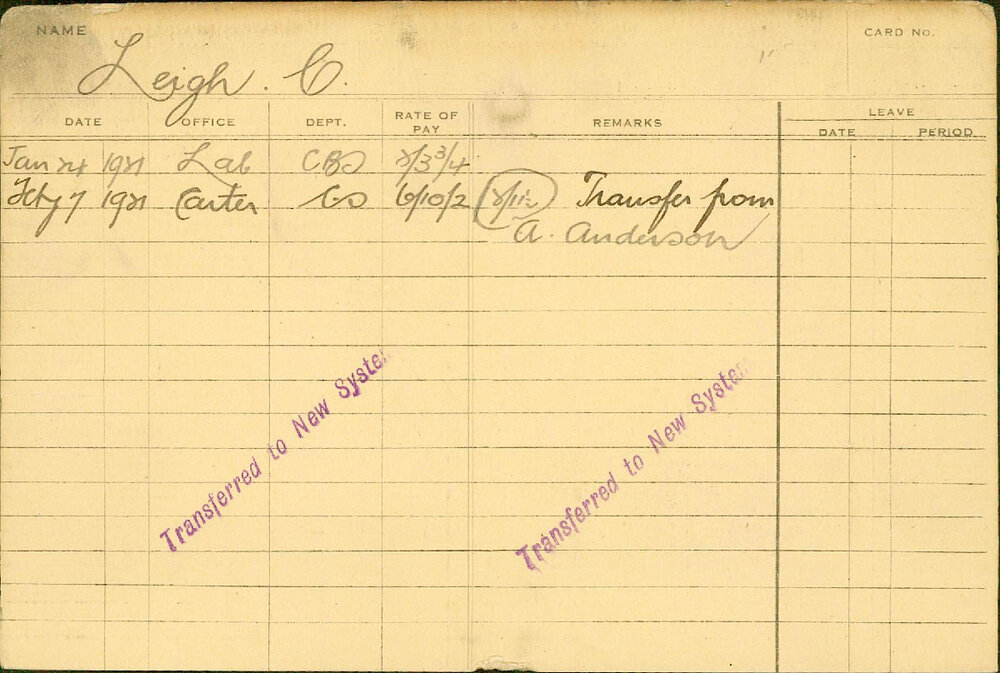 NAME
CARD No.
Leigh. C.
DATE OFFICE DEPT. RATE OF PAY REMARKS LEAVE
DATE PERIOD
Jan 24 1921 Lab CBD 2/3 3/4
Feby 7 1921 Carter GD 6/10/2 2/11½ Transfer from
A. Anderson
Transferred to New System
Transferred to New System